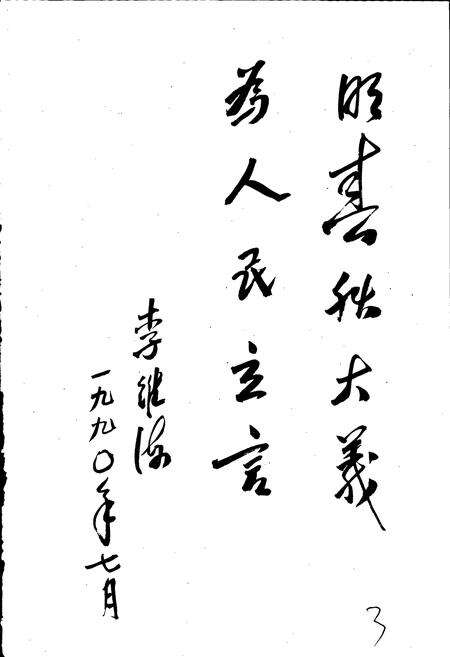 明春秋大義
為人民立言
李维海
一九九〇年七月
3